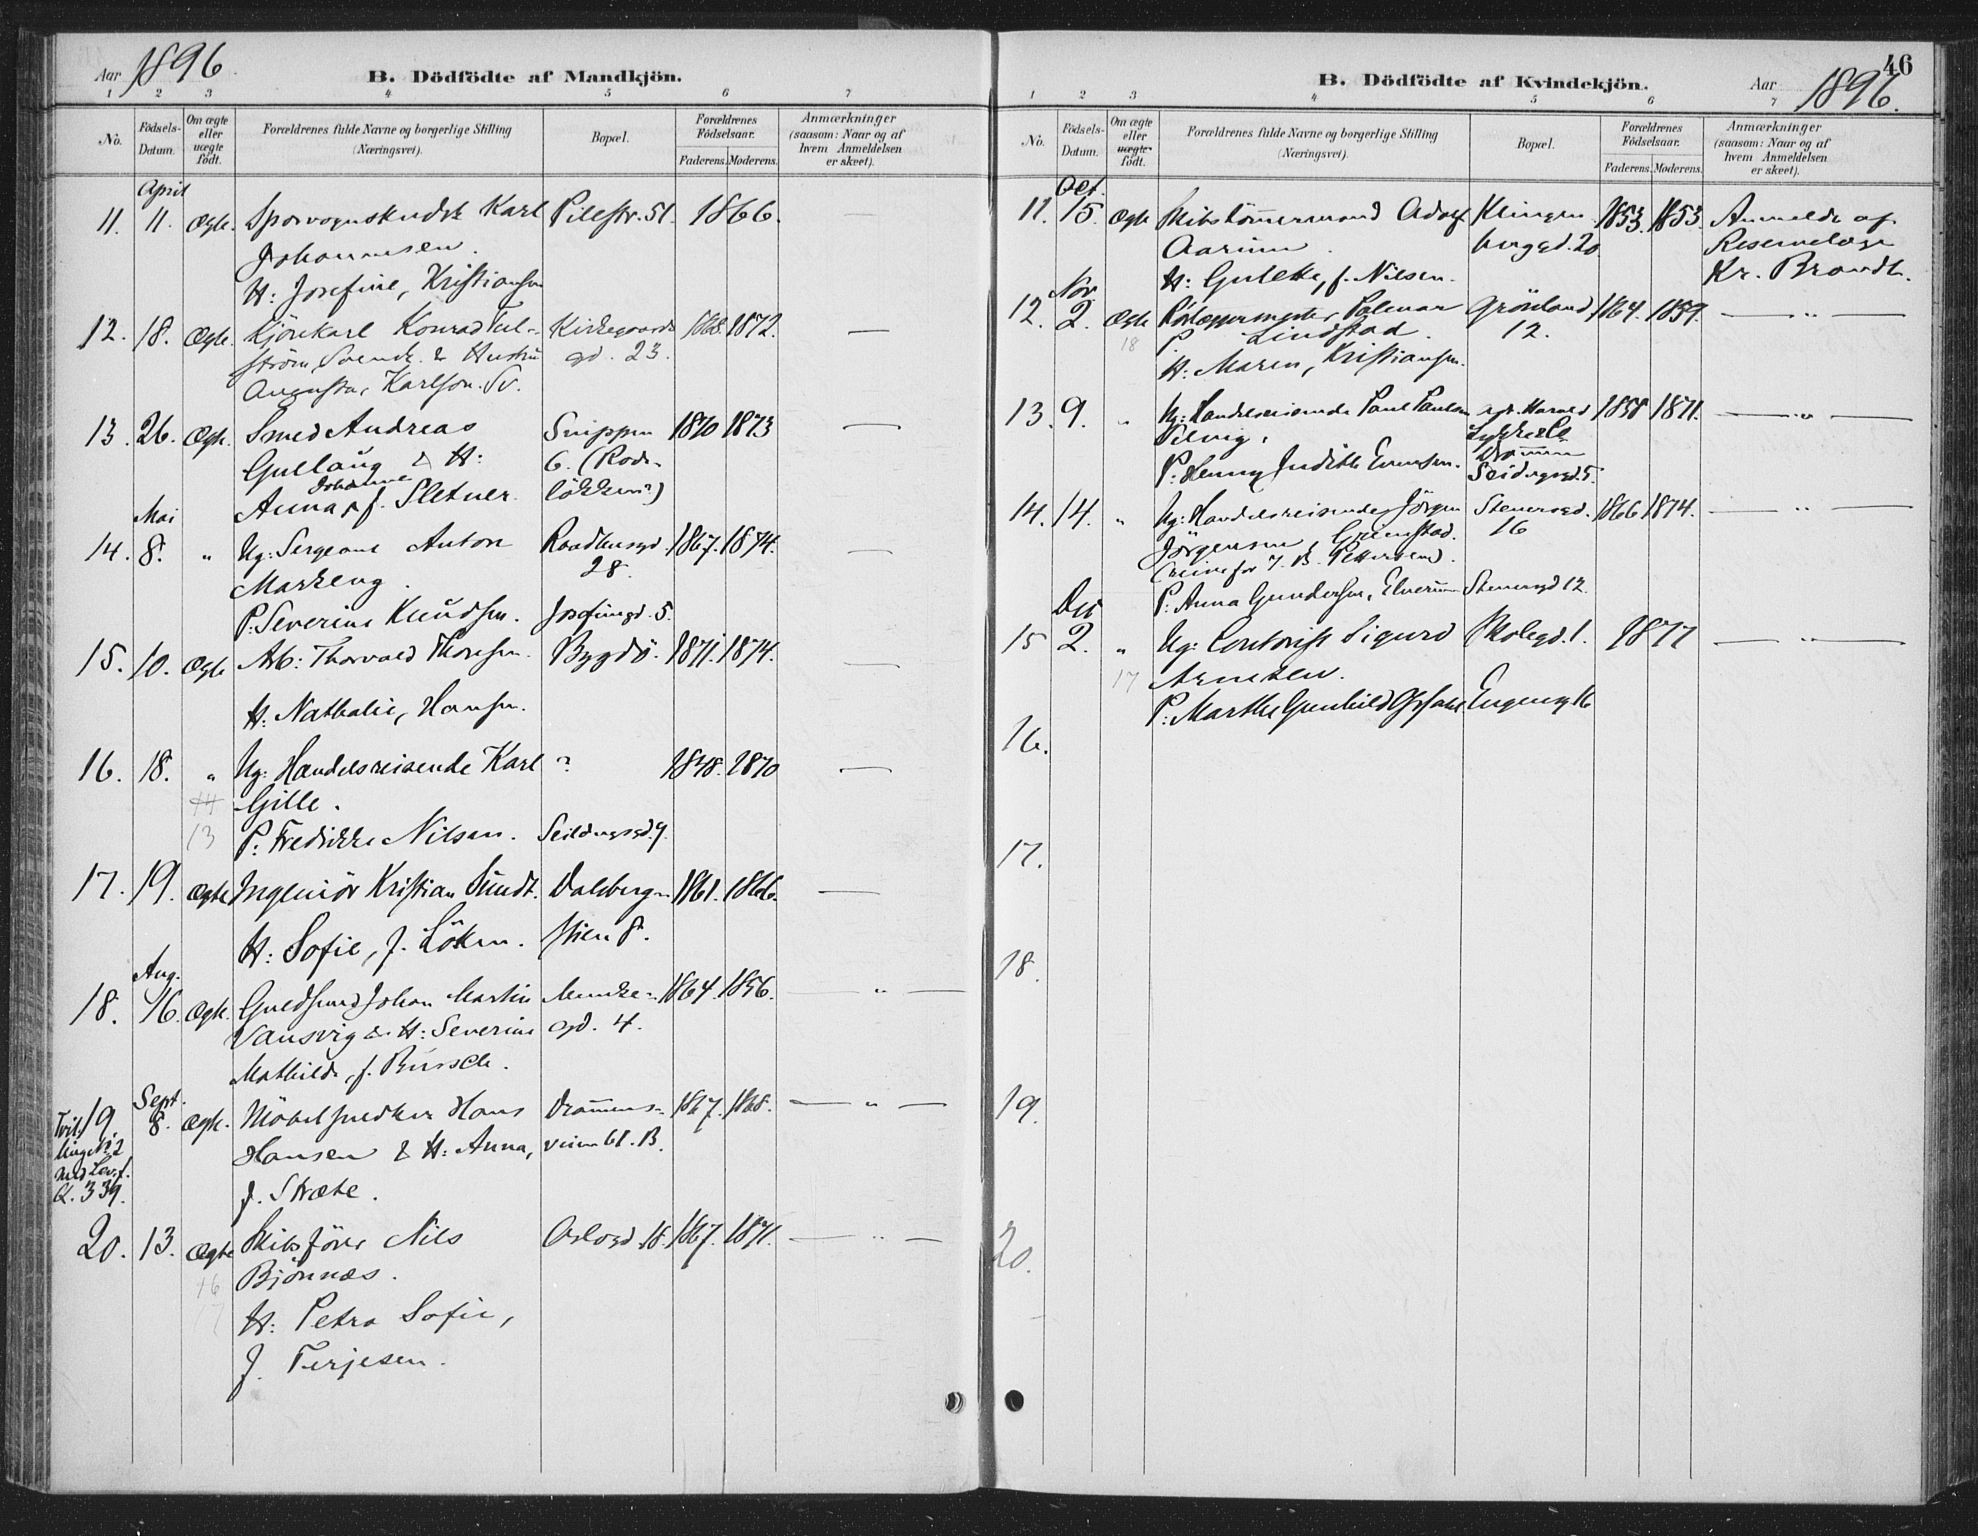 Aar 1896.
B. Dödfödte af Mandkjön.
1 2 3 4 5 6 7
No.
Födsels-Datum.
Om ægte eller uægte födt.
Forældrenes fulde Navne og borgerlige Stilling (Næringsvei).
Bopæl.
Forældrenes Födselsaar.
Faderens. Moderens.
Anmærkninger (saasom: Naar og af hvem Anmeldelsen er skeet).
April
11. 11. Ægte. Sporvognskudsk Karl Pilestr. 51. 1866. —
Johannesen.
H: Josefine, Kristiansen
12. 18. Ægte. Kjörekarl Konrad 1868. 1872. —
ström, Svensk. & Hustru gd. 23.
Augusta, Karlson. Sv.
13. 26. Ægte. Smed Andreas Snippen 1870 1873 —
Gullaug & H: 6. (Rode-
Johanne
Anna, f. Sletner. lökken?)
Mai
14. 8. " Ug: Sergeant Anton Raadhusgd. 1867. 1874. —
Markeng. 28.
P: Severine Knudsen. Josefinegd. 5.
15. 10. Ægte Arb: Thorvald Thoresen. Bygdö. 1871. 1874. —
H: Nathalie, Hansen.
16. 18. " Ug: Handelsreisende Karl ? 1848. 1870 —
14 Gille.
13 P: Fredrikke Nilsen. Seildugsgd. 9.
17. 19. Ægte Ingeniör Kristian Sundt. Dalsberg- 1861. 1866. —
H: Sofie, f. Löken. stien 8.
Aug.
18. 16. Ægte. Guldsmed Johan Martin Munke- 1864. 1856. — " —
Vansvig & H: Severine gd. 4.
Mathilde, f. Bussch.
Sept.
19. 8. Ægte. Möbelsnedker Hans Drammens- 1867. 1868. — " —
Tvil-
ling No 2
med Lev. f.
K. 339.
Hansen & H: Anna, veien 61. B.
f. Stræte.
20. 13. Ægte Skibsförer Nils Oslogd. 18. 1867. 1871. — " —
16 Bjönnæs.
17 H: Petra Sofie,
f. Terjesen.
46
B. Dödfödte af Kvindekjön.
Aar 1896.
1 2 3 4 5 6 7
No.
Födsels-Datum.
Om ægte eller uægte födt.
Forældrenes fulde Navne og borgerlige Stilling (Næringsvei).
Bopæl.
Forældrenes Födselsaar.
Faderens. Moderens.
Anmærkninger (saasom: Naar og af hvem Anmeldelsen er skeet).
Oct.
11. 15. Ægte Skibstömmermand Adolf Klingen- 1853. 1853. Anmeldt af
Aarum. berggd. 20. Reservelæge
H: Gulette, f. Nilsen. Kr. Brandt.
Nov.
12. 2. Ægte Rörlæggermester Grönland 1864. 1859. — " —
18 P Lindstad. 12.
H: Maren, Kristiansen.
13. 9. " Ug: Handelsreisende Paul Paulsen 1858 1871. — " —
P: Henny Judithe Evensen. Seildugsgd. 5.
14. 14. " Ug: Handelsreisende Jörgen Stenersgd. 1866 1874. — " —
Jörgensen, Grimstad. 16
(reiser for J. B. Pettersen).
P: Anna Gundersen, Elverum Stenersgd 12.
Des
15 2. " Ug: Contorist Sigurd Skolegd. 1. 1877 — " —
17 Arntzen.
P: Marthe Gunhild Eugeniag 16
16.
17.
18.
19.
20.